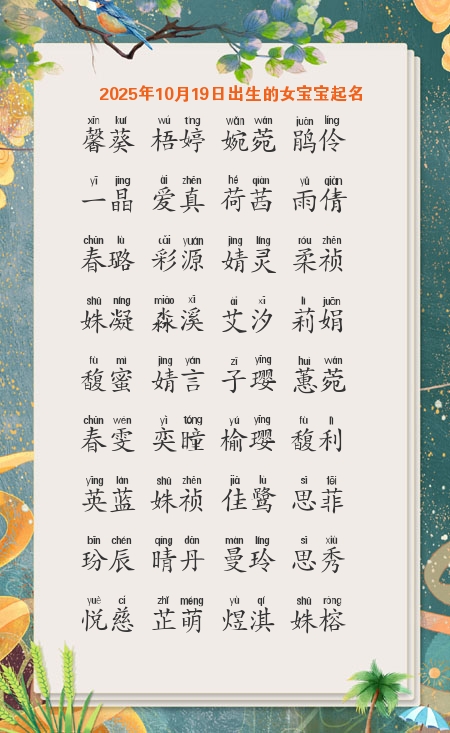 2025年10月19日出生的女宝宝起名
xīn kuí wú tíng wǎn wǎn juān líng
馨葵 梧婷 婉菀 鹃伶
yī jīng ài zhēn hé qiàn yǔ qiàn
一晶 爱真 荷茜 雨倩
chūn lù cǎi yuán jìng líng róu zhēn
春璐 彩源 婧灵 柔祯
shū níng miǎo xī ài xī lì juān
姝凝 淼溪 艾汐 莉娟
fù mì jìng yán zǐ yīng huì wǎn
馥蜜 婧言 子璎 蕙菀
chūn wén yì tóng yú yīng fù lì
春雯 奕曈 榆璎 馥利
yīng lán shū zhēn jiā lù sī fēi
英蓝 姝祯 佳鹭 思菲
bīn chén qíng dān màn líng sī xiù
玢辰 晴丹 曼玲 思秀
yuè cí zhǐ méng yù qí shū róng
悦慈 芷萌 煜淇 姝榕